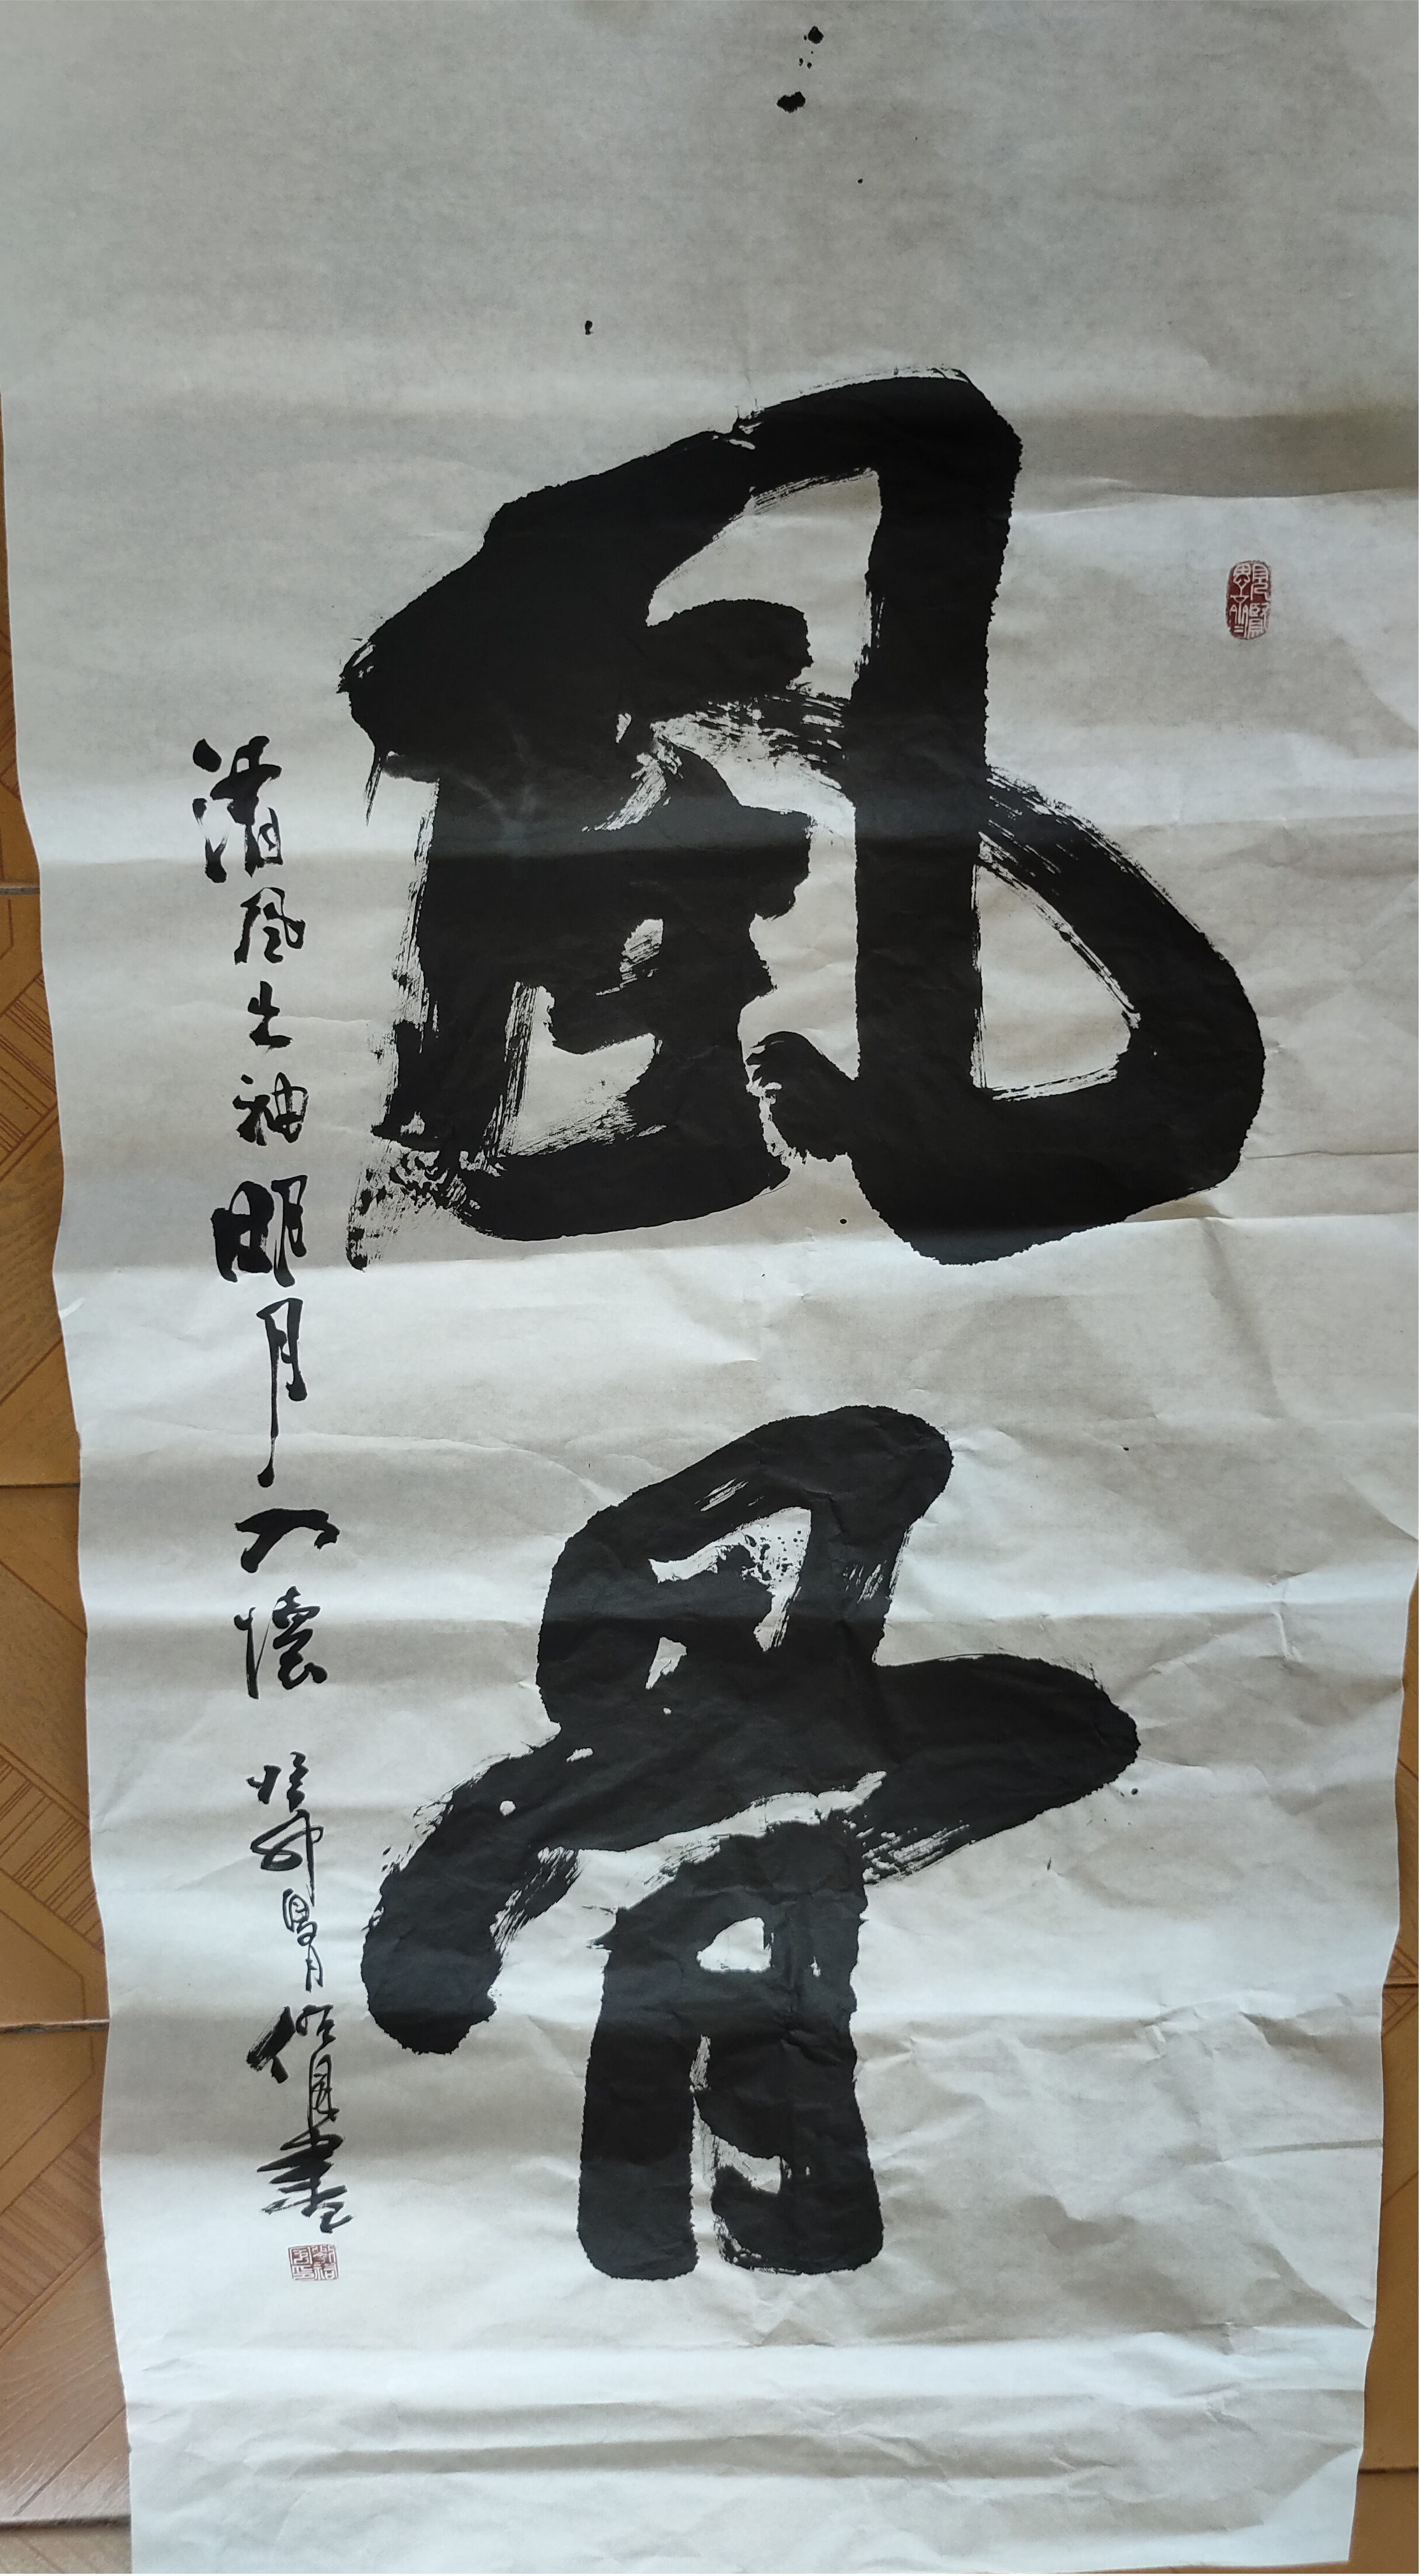 風骨
清風出袖明月入懷
書